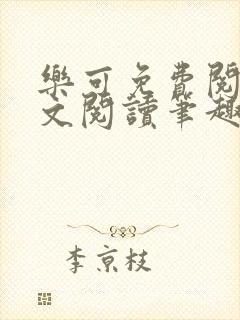 樂可免費閱
文閱讀筆趣
李京枝